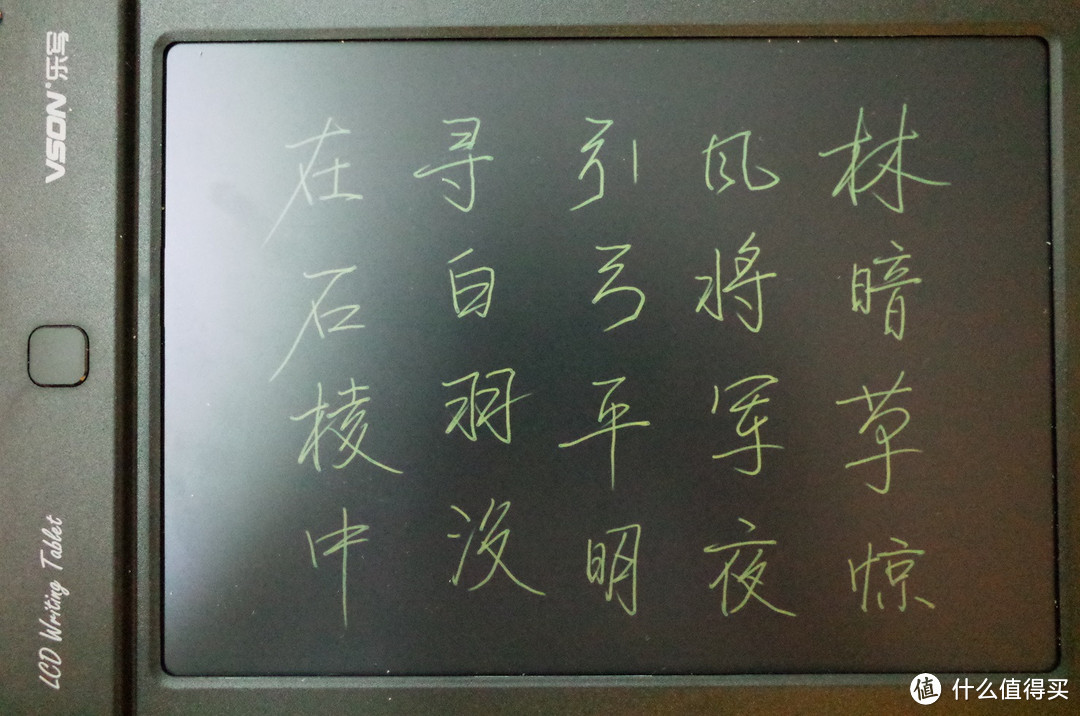 林暗草惊
风将军夜
引弓平明
寻白羽没
在石棱中
VSON®乐写
LCD Writing Tablet
值 什么值得买